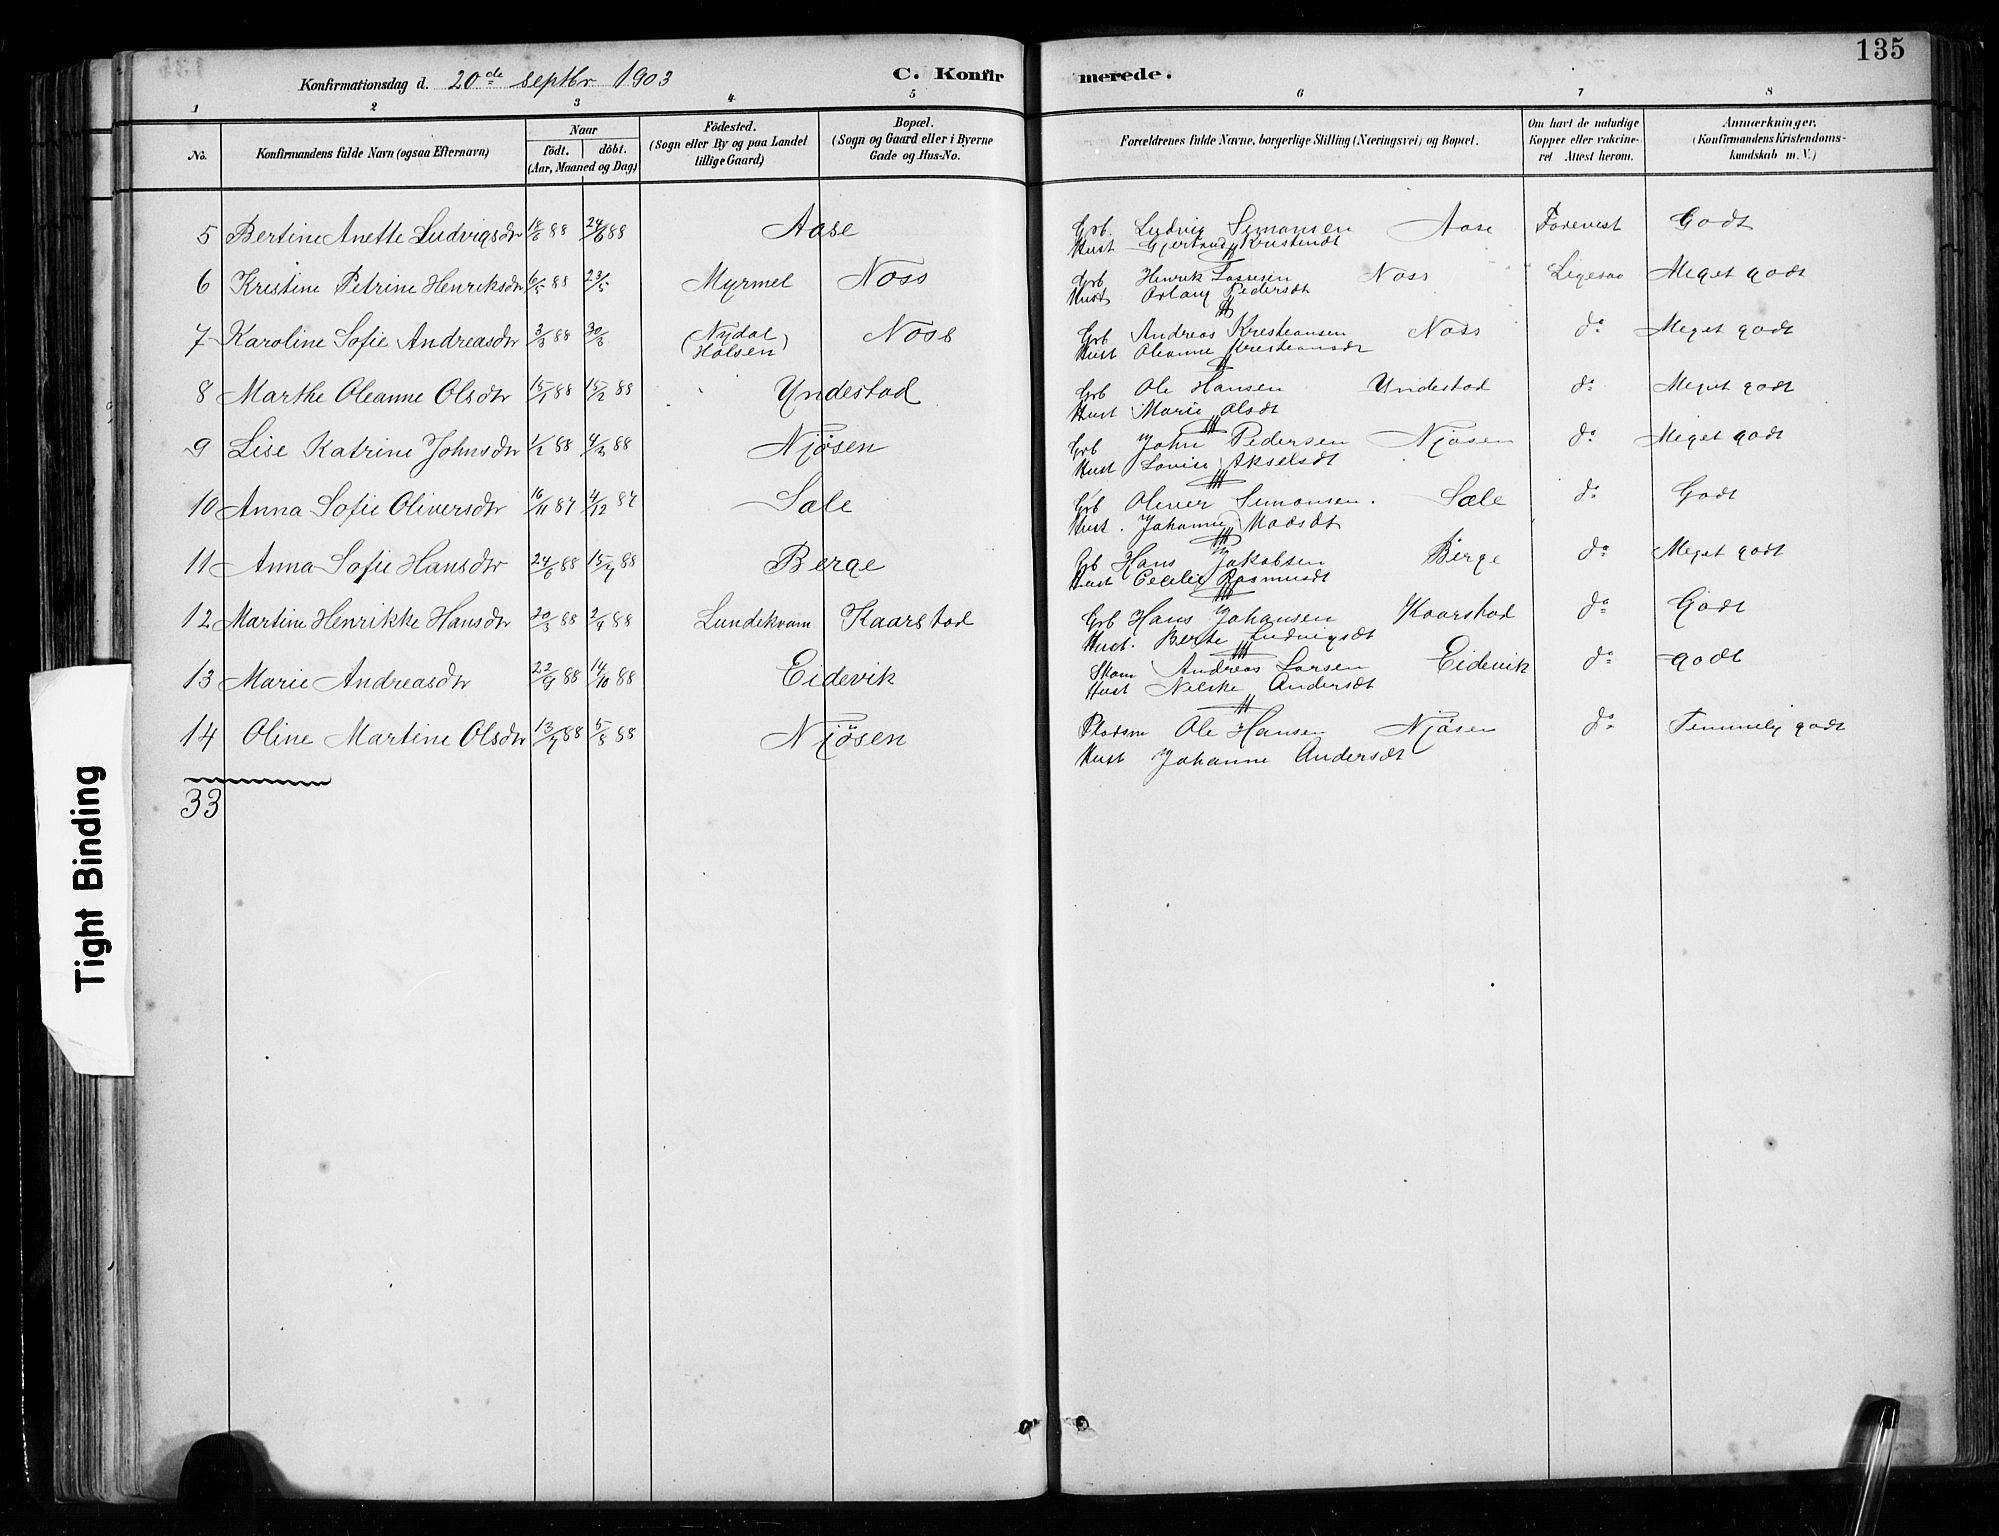 135
Konfirmationsdag d. 20de septbr 1903
C. Konfirmerede.
1 2 3 4 5 6 7 8
No.
Konfirmandens fulde Navn (ogsaa Efternavn)
Naar
födt. döbt.
(Aar, Maaned og Dag)
Födested.
(Sogn eller By og paa Landet
tillige Gaard)
Bopæl.
(Sogn og Gaard eller i Byerne
Gade og Hus-No.
Forældrenes fulde Navne, borgerlige Stilling (Næringsvei) og Bopæl.
Om havt de naturlige
Kopper eller vakcine-
ret Attest herom.
Anmærkninger,
(Konfirmandens Kristendoms-
kundskab m. V.)
5 Bertine Anette Ludvigsdtr 88 24/6 88 Aase Grb. Ludvig Simonsen Aase Forevist Godt
Hust Gjertrud Kristensdt
6 Kristine Petrine Henriksdtr 6/5 88 23/5 Myrmel Noss Grb Henrik Lassesen Noss Ligesaa Meget godt
Hust Aslaug Pedersdt
7 Karoline Sofie Andreasdtr 3/3 88 30/3 (Nydal Holsen) Noss Grb Andreas Kristiansen Noss do Meget godt
Hust Oleanne Kristiansdt
8 Marthe Oleanne Olsdtr 15/1 88 15/2 88 Yndestad Grb Ole Hansen Undestad do Meget godt
Hust Marie Olsdt
9 Lise Katrine Johnsdtr 88 88 Njøsen Grb John Pedersen Njøsen do Meget godt
Hust Lovise Akselsdt
10 Anna Sofie Oliversdtr 16/11 87 4/12 87 Sæle Grb Oliver Simonsen. Sæle do Godt
Hust. Johanne Madsdt
11 Anna Sofie Hansdtr 24/6 88 15/7 88 Berge Grb Hans Jakobsen Berge do Meget godt
Hust Cecilie Rasmusdt
12 Martine Henrikke Hansdtr 20/3 88 2/4 88 Lundekvam Kaarstad Grb Hans Johansen Kaarstad do Godt
Hust. Berte Ludvigsdt
13 Marie Andreasdtr 22/9 88 14/10 88 Eidevik Skom Andreas Larsen Eidevik do godt
Hust Nilske Andersdt
14 Oline Martine Olsdtr 13/7 88 5/8 88 Njøsen Pladsm Ole Hansen Njøsen do Temmelig godt
Hust Johanne Andersdt
33
Tight Binding